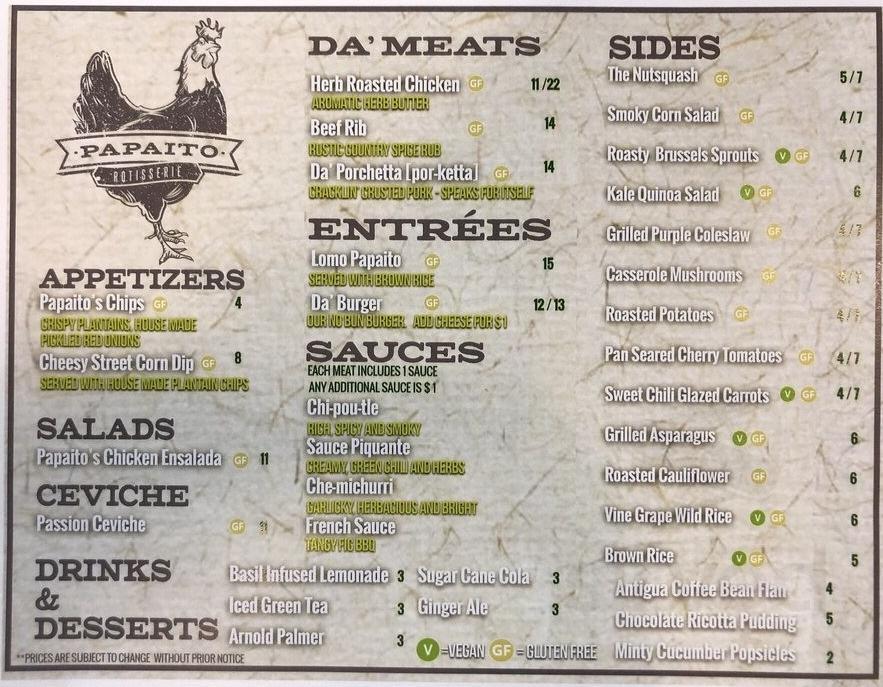 PAPAITO
ROTISSERIE
APPETIZERS
Papaito's Chips GF 4
CRISPY PLANTAINS, HOUSE MADE
PICKLED RED ONIONS
Cheesy Street Corn Dip GF 8
SERVED WITH HOUSE MADE PLANTAIN CHIPS
SALADS
Papaito's Chicken Ensalada GF 11
CEVICHE
Passion Ceviche GF
DA' MEATS
Herb Roasted Chicken GF 11/22
AROMATIC HERB BUTTER
Beef Rib GF 14
RUSTIC COUNTRY SPICE RUB
Da' Porchetta [por-ketta] GF 14
CRACKLIN' CRUSTED PORK - SPEAKS FOR ITSELF
ENTRÉES
Lomo Papaito GF 15
SERVED WITH BROWN RICE
Da' Burger GF 12/13
OUR NO BUN BURGER. ADD CHEESE FOR $1
SAUCES
EACH MEAT INCLUDES 1 SAUCE
ANY ADDITIONAL SAUCE IS $1
Chi-pou-tle
RICH, SPICY AND SMOKY
Sauce Piquante
CREAMY, GREEN CHILI AND HERBS
Che-michurri
GARLICKY, HERBACIOUS AND BRIGHT
French Sauce
TANGY FIG BBQ
SIDES
The Nutsquash GF 5/7
Smoky Corn Salad GF 4/7
Roasty Brussels Sprouts V GF 4/7
Kale Quinoa Salad V GF 6
Grilled Purple Coleslaw GF
Casserole Mushrooms GF
Roasted Potatoes GF
Pan Seared Cherry Tomatoes GF 4/7
Sweet Chili Glazed Carrots V GF 4/7
Grilled Asparagus V GF 6
Roasted Cauliflower GF 6
Vine Grape Wild Rice V GF 6
Brown Rice V GF 5
DRINKS
&
DESSERTS
Basil Infused Lemonade 3
Iced Green Tea 3
Arnold Palmer 3
Sugar Cane Cola 3
Ginger Ale 3
Antigua Coffee Bean Flan 4
Chocolate Ricotta Pudding 5
Minty Cucumber Popsicles 2
V =VEGAN GF = GLUTEN FREE
**PRICES ARE SUBJECT TO CHANGE WITHOUT PRIOR NOTICE